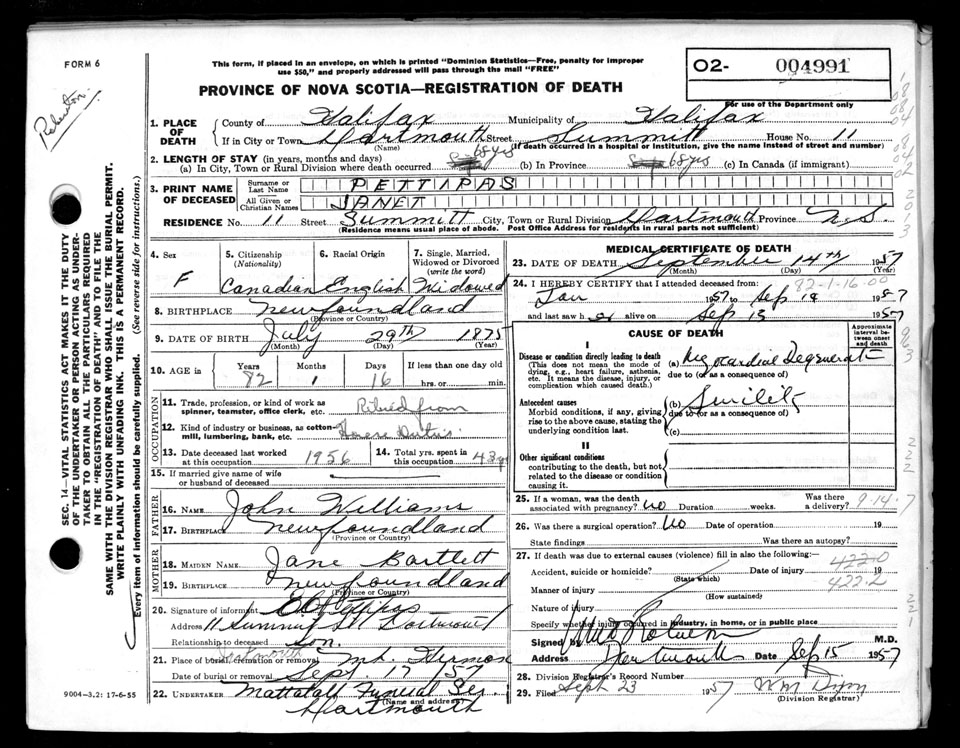 FORM 6
This form, if placed in an envelope, on which is printed "Dominion Statistics—Free, penalty for improper
use $50," and properly addressed will pass through the mail "FREE"
O2- 004991
PROVINCE OF NOVA SCOTIA—REGISTRATION OF DEATH
For use of the Department only
1. PLACE OF DEATH
County of Halifax Municipality of Halifax
If in City or Town Dartmouth Street Summitt House No. 11
(Name) (If death occurred in a hospital or institution, give the name instead of street and number)
2. LENGTH OF STAY (in years, months and days)
(a) In City, Town or Rural Division where death occurred 68 yrs (b) In Province 68 yrs (c) In Canada (if immigrant)
3. PRINT NAME OF DECEASED
Surname or Last Name PETTIPAS
All Given or Christian Names JANET
RESIDENCE No. 11 Street Summitt City, Town or Rural Division Dartmouth Province N.S.
(Residence means usual place of abode. Post Office Address for residents in rural parts not sufficient)
4. Sex F
5. Citizenship (Nationality) Canadian
6. Racial Origin English
7. Single, Married, Widowed or Divorced (write the word) Widowed
8. BIRTHPLACE Newfoundland
(Province or Country)
9. DATE OF BIRTH July 29th 1875
(Month) (Day) (Year)
10. AGE in Years 82 Months 1 Days 16 If less than one day old hrs. or min.
OCCUPATION
11. Trade, profession, or kind of work as spinner, teamster, office clerk, etc. Retired from
12. Kind of industry or business, as cotton-mill, lumbering, bank, etc. House Duties
13. Date deceased last worked at this occupation 1956
14. Total yrs. spent in this occupation 43 yrs
15. If married give name of wife or husband of deceased
FATHER
16. NAME John Williams
17. BIRTHPLACE Newfoundland
(Province or Country)
MOTHER
18. MAIDEN NAME Jane Bartlett
19. BIRTHPLACE Newfoundland
(Province or Country)
20. Signature of informant Pettipas
Address 11 Summit St Dartmouth
Relationship to deceased Son.
Dartmouth
21. Place of burial, cremation or removal Mt. Hermon
Date of burial or removal Sept 17 / 57
22. UNDERTAKER Mattatall Funeral Ser.
(Name and address)
Dartmouth
9004-3.2: 17-6-55
MEDICAL CERTIFICATE OF DEATH
23. DATE OF DEATH September 14th 1957
(Month) (Day) (Year)
82-1-16-00
24. I HEREBY CERTIFY that I attended deceased from:
Jan 1957 to Sep 1957
and last saw h er alive on Sep 13 1957
CAUSE OF DEATH
Approximate interval between onset and death
I
Disease or condition directly leading to death
(This does not mean the mode of dying, e.g., heart failure, asthenia, etc. It means the disease, injury, or complication which caused death.)
(a) Myocardial Degeneration
due to (or as a consequence of)
Antecedent causes
Morbid conditions, if any, giving rise to the above cause, stating the underlying condition last.
(b) Senility
due to (or as a consequence of)
(c)
II
Other significant conditions
contributing to the death, but not related to the disease or condition causing it.
25. If a woman, was the death associated with pregnancy? No Duration weeks. Was there a delivery?
9-14-7
26. Was there a surgical operation? No Date of operation 19
State findings Was there an autopsy?
27. If death was due to external causes (violence) fill in also the following:—
Accident, suicide or homicide? Date of injury 19
(State which)
422.0
Manner of injury 422.2
(How sustained)
Nature of injury
Specify whether injury occurred in industry, in home, or in public place
Signed by M.D.
Address Dartmouth Date Sep 15 1957
28. Division Registrar's Record Number
29. Filed Sept 23 1957
(Division Registrar)
SEC. 14—VITAL STATISTICS ACT MAKES IT THE DUTY
OF THE UNDERTAKER OR PERSON ACTING AS UNDER-
TAKER TO OBTAIN ALL THE PARTICULARS REQUIRED
IN THE "REGISTRATION OF DEATH" AND TO FILE THE
SAME WITH THE DIVISION REGISTRAR WHO SHALL ISSUE THE BURIAL PERMIT.
WRITE PLAINLY WITH UNFADING INK. THIS IS A PERMANENT RECORD.
Every item of information should be carefully supplied. (See reverse side for instructions.)